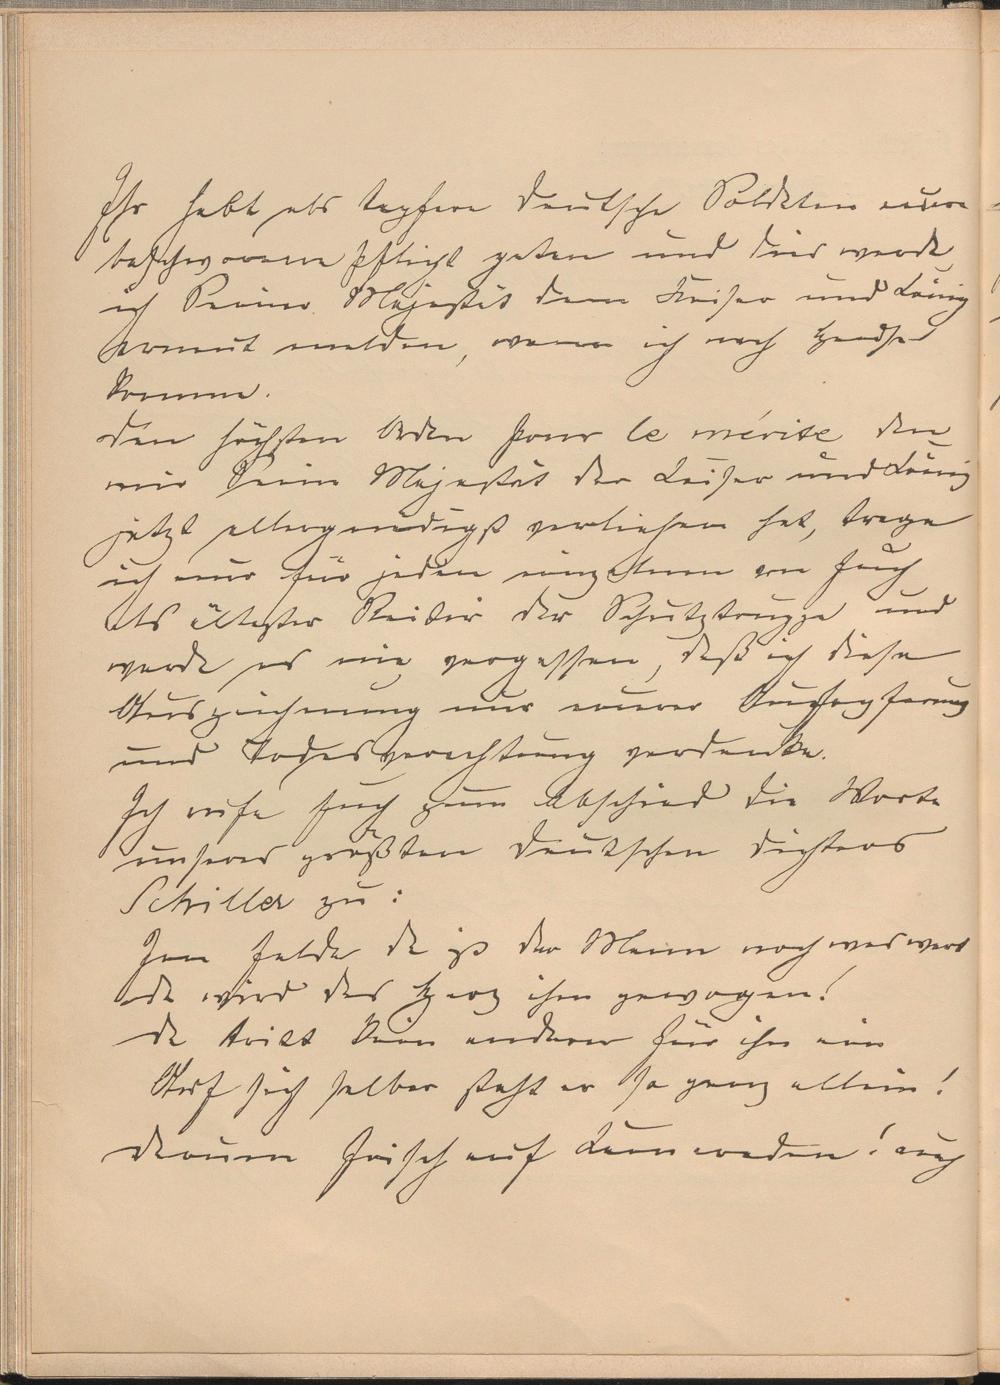 Ihr habt als tapfere deutsche Soldaten eure
beschworene Pflicht getan und dies werde
ich Seiner Majestät dem Kaiser und König
erneut melden, wenn ich nach Hause
komme.
Den höchsten Orden pour le mérite den
mir Seine Majestät der Kaiser und König
jetzt allergnädigst verliehen hat, trage
ich nur für jeden einzelnen von Euch
als ältester Reiter der Schutztruppe und
werde es nie vergessen, daß ich diese
Auszeichnung nur eurer Aufopferung
und Todesverachtung verdanke.
Ich rufe Euch zum Abschied die Worte
unseres größten deutschen Dichters
Schiller zu:
Im Felde da ist der Mann noch was wert
da wird das Herz ihm gewogen!
da tritt kein anderer für ihn ein
Auf sich selber steht er so ganz allein!
Darum frisch auf Kameraden! auch